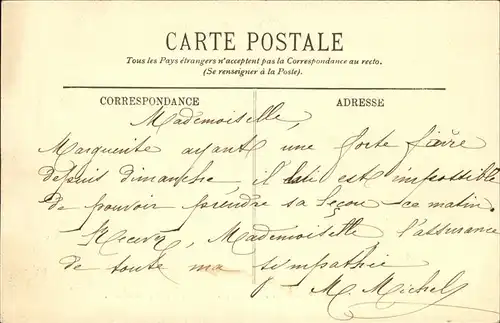 CARTE POSTALE
Tous les Pays étrangers n'acceptent pas la Correspondance au recto.
(Se renseigner à la Poste).
CORRESPONDANCE
ADRESSE
Mademoiselle,
Marguerite ayant une forte fièvre
depuis dimanche il lui est impossible
de pouvoir prendre sa leçon ce matin.
Recevez, Mademoiselle l'assurance
de toute ma sympathie
M. Michel